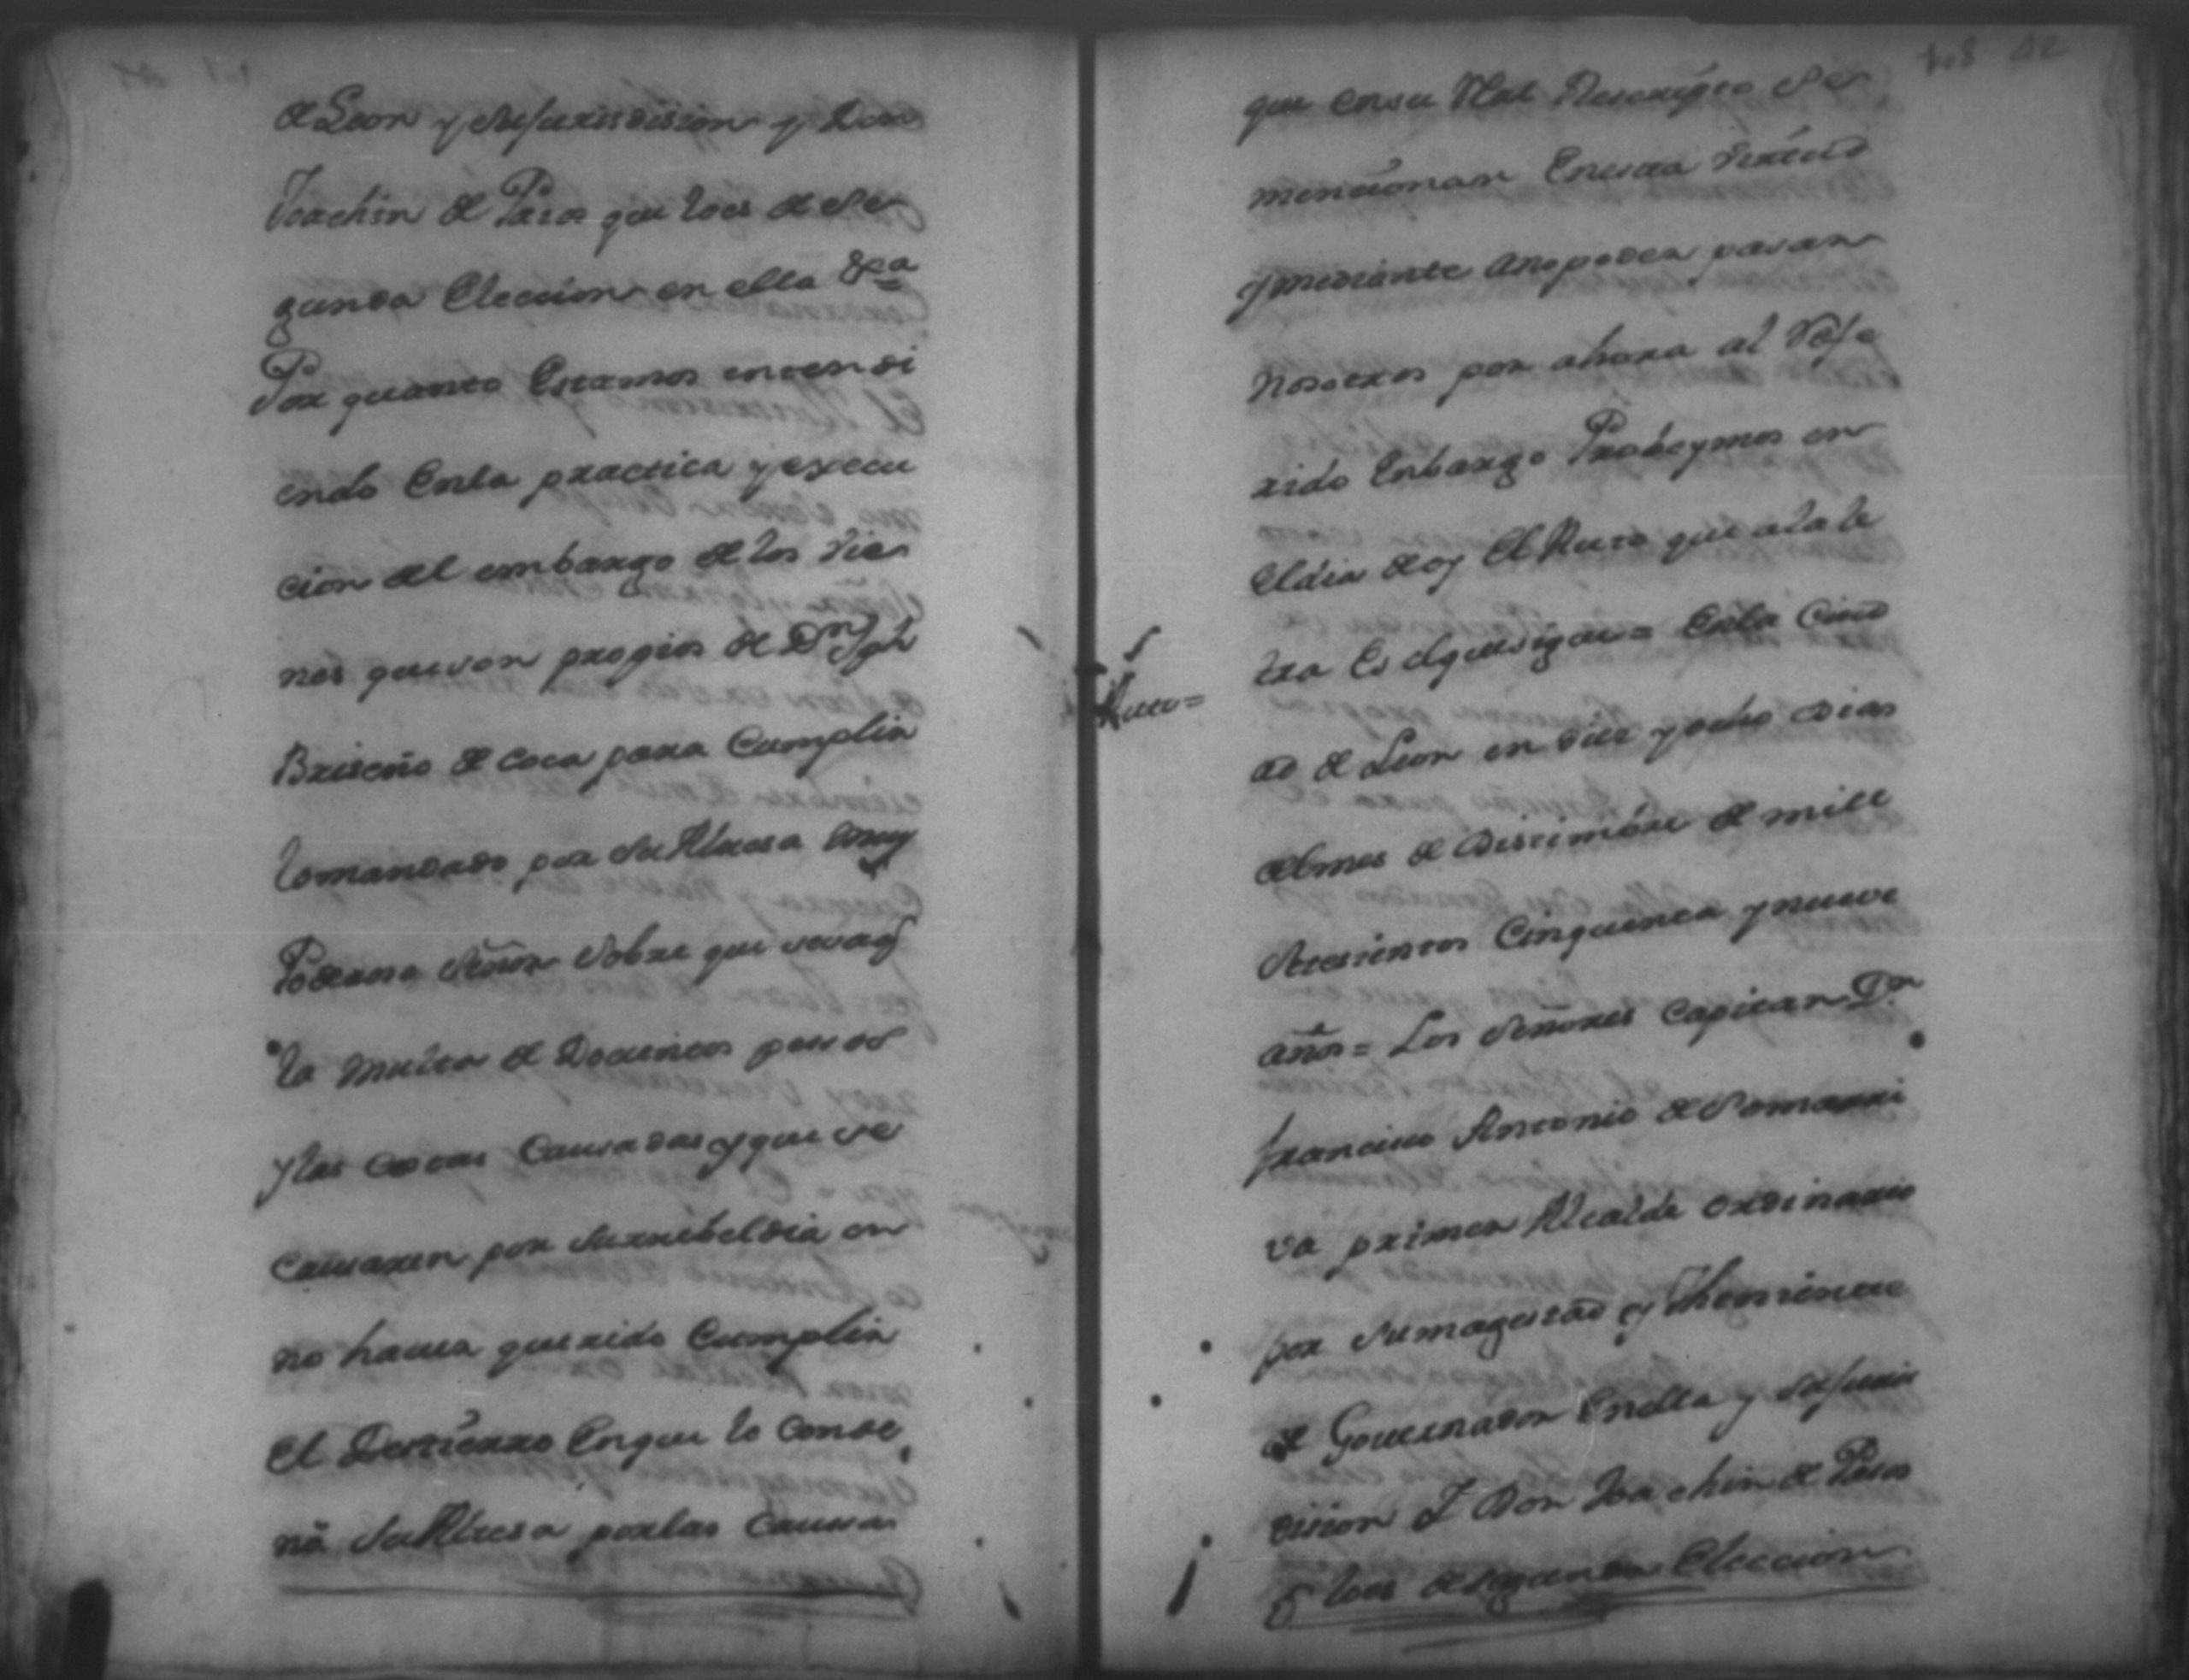 de Leon y su Jurisdision y Don
Joachin de Pasos que lo es de Se
gunda Eleccion en ella &ca
Por quanto Estamos entendi
endo Enla practica y execu
cion del embargo de los vie
nes que son propios de Dn Jph
Briseño de Coca para Cumplir
lo mandado por su Alteza muy
Poderoso Señor sobre que se
la multa de Docientos pesos
y las costas Causadas y que se
Causaren por su rrebeldia en
no haver querido Cumplir
el Destierro Enque lo Conde
nò su Alteza por las Causas
que ensu Real Rescripto Se
mencionan Enesta virtud
y mediante a no poder pasar
nosotros por ahora al Refe
rido Enbargo Probeymos en
el dia de oy El Auto que a la le
tra Es el que sigue =
Auto =
Enla Ciud
ad de Leon en diez y ocho dias
del mes de Disiembre de mill
Setesientos Cinquenta y nueve
años = Los Señores Capitan Dn
Francisco Antonio de Somarri
va primer Alcalde ordinario
por su magestad y Theniente
de Governador Enella y su Juris
dision I Don Joachin de Pasos
q lo es de segunda Eleccion